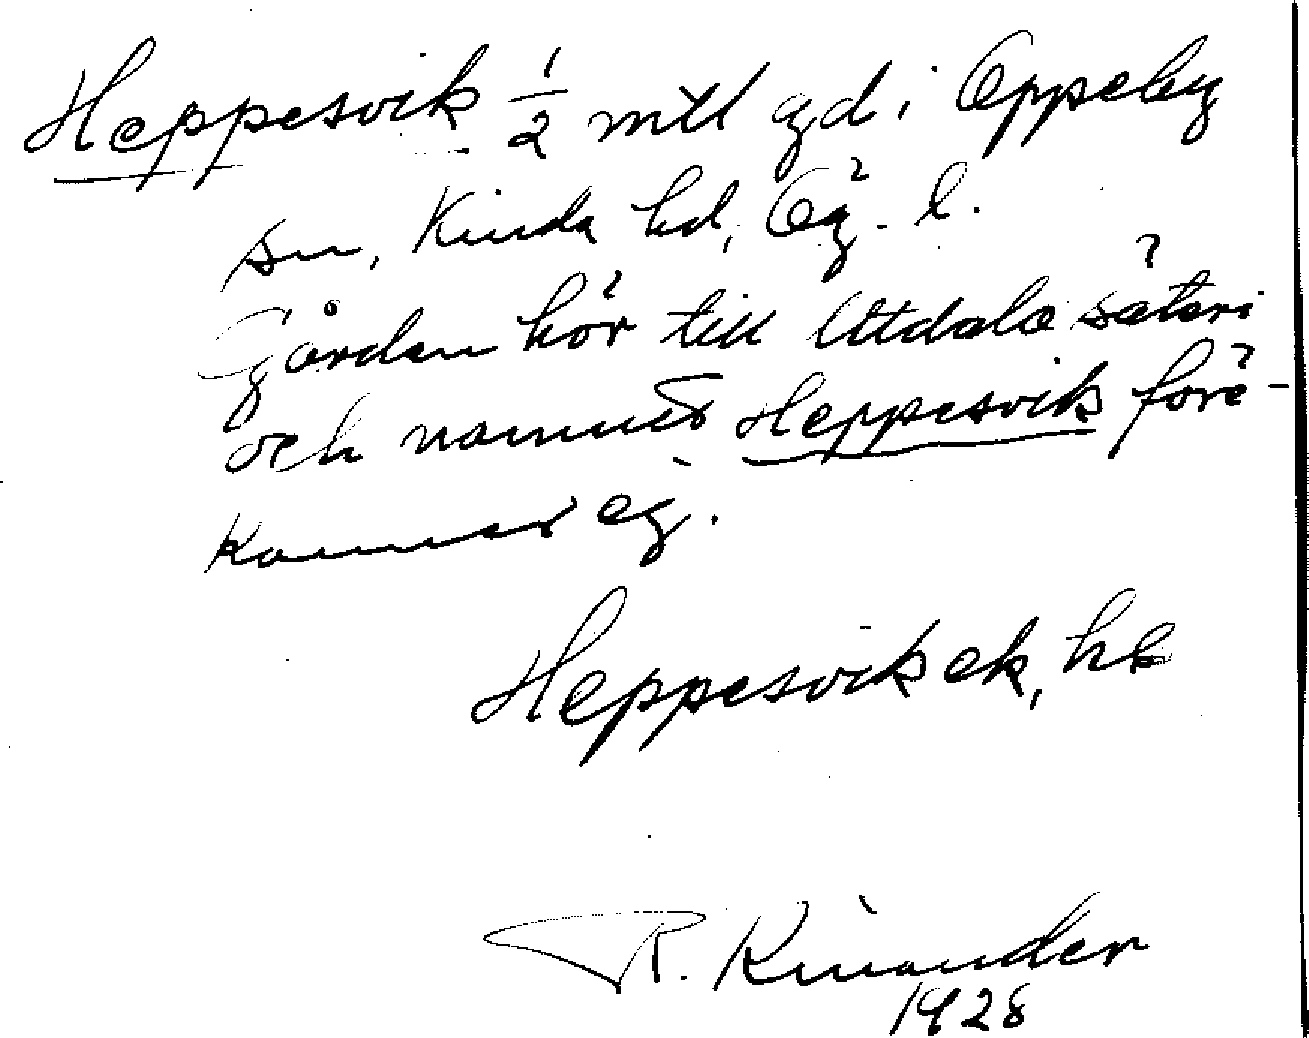 Heppesvik 1/2 mtl gd i Oppeby
sn, Kinda hd, Ög. l.
Gården hör till Uddala säteri
och namnet Heppesvik före-
kommer ej.
Heppesvik ek, hs
R. Kinander
1928